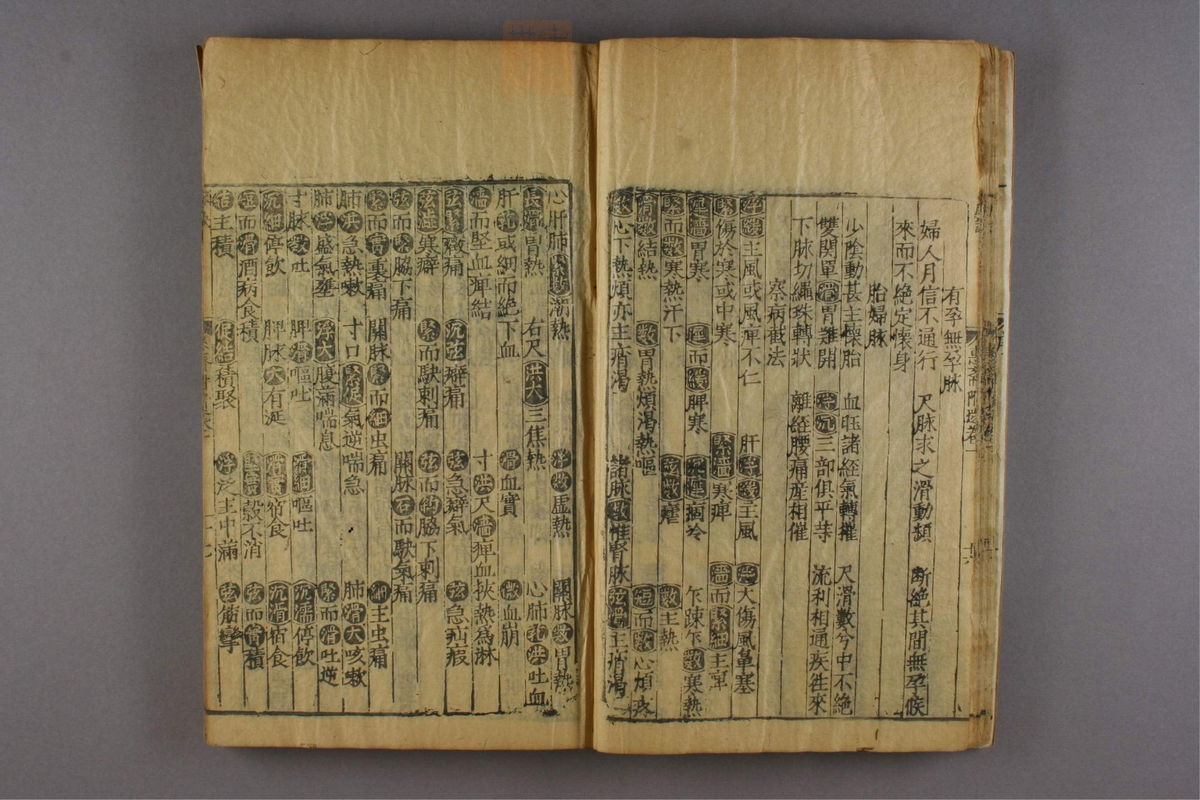 有孕無孕脉
婦人月信不通行 尺脉求之滑動頻 断絶其間無孕候
來而不絶定懐身
胎婦脉
少陰動甚主懆胎 血旺諸経氣轉摧 尺滑數兮中不絶
雙関單滑胃難開 浮沉三部俱平等 流利相通疾往來
下脉切繩珠轉状 離経腰痛産相催
察病截法
浮緩主風或風痺不仁 肝浮緩主風 大傷風鼻塞
緊傷於寒或中寒 緊濇寒痺 濇而緊細主痺
遲濇胃寒 遲而緩脾寒 痼冷 乍踈乍數寒熱
緊而數寒熱汗下 弦數瘧 數主熱
滑數結熱 數胃熱煩渇熱嘔 而數心煩疼
心下熱煩亦主痟渇 諸脉數惟腎脉弦滑主痟渇
心肝肺緊數潮熱 右尺洪大三焦熱 浮數虚熱 關脉數胃熱
長濡胃熱 心肺芤洪吐血
肝芤或細而絶下血 滑血實 微血崩
濇而堅血痺結 寸洪尺濇痺血挟熱為淋
弦緊癥痛 沉弦癖痛 弦急癖氣 弦急疝瘕
弦遲寒癖 緊而駃刺痛 弦而鈎脇下刺痛
弦而緊脇下痛 關脉石而駃氣痛
緊而實裏痛 關脉緊而細虫痛 細主虫痛
肺洪急熱嗽 寸口緊促氣逆喘急 肺滑大咳嗽
肺浮盛氣壅 浮大腹滿喘息 緊而滑吐逆
寸脉數吐 脾滑嘔吐 滑細嘔吐 沉濡停飲
沉細停飲 脾脉大有涎 滑實宿食 沉滑宿食
遲而滑酒病食積 穀不消 弦而實積
結主積 伏結積聚 浮泛主中滿 弦筋攣